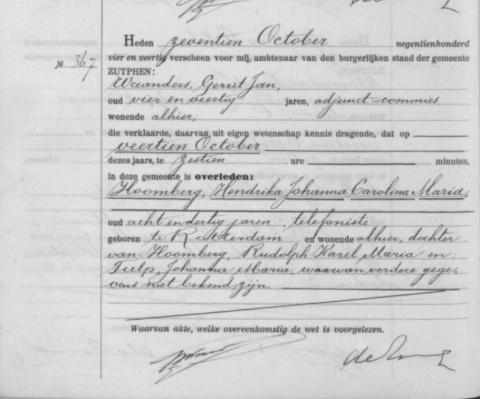 Heden zeventien October negentienhonderd
vier en veertig verscheen voor mij, ambtenaar van den burgerlijken stand der gemeente
№ 367
ZUTPHEN:
Waanders, Gerrit Jan,
oud vier en veertig jaren, adjunct-commies
wonende alhier,
die verklaarde, daarvan uit eigen wetenschap kennis dragende, dat op
veertien October
dezes jaars, te zestien ure minuten,
in deze gemeente is overleden:
Hoomberg, Hendrika Johanna Carolina Maria,
oud acht en dertig jaren, telefoniste
geboren te Rotterdam en wonende alhier, dochter
van Hoomberg, Rudolph Karel Maria en
Tulp, Johanna Maria, waarvan verdere gege-
vens niet bekend zijn.
Waarvan akte, welke overeenkomstig de wet is voorgelezen.